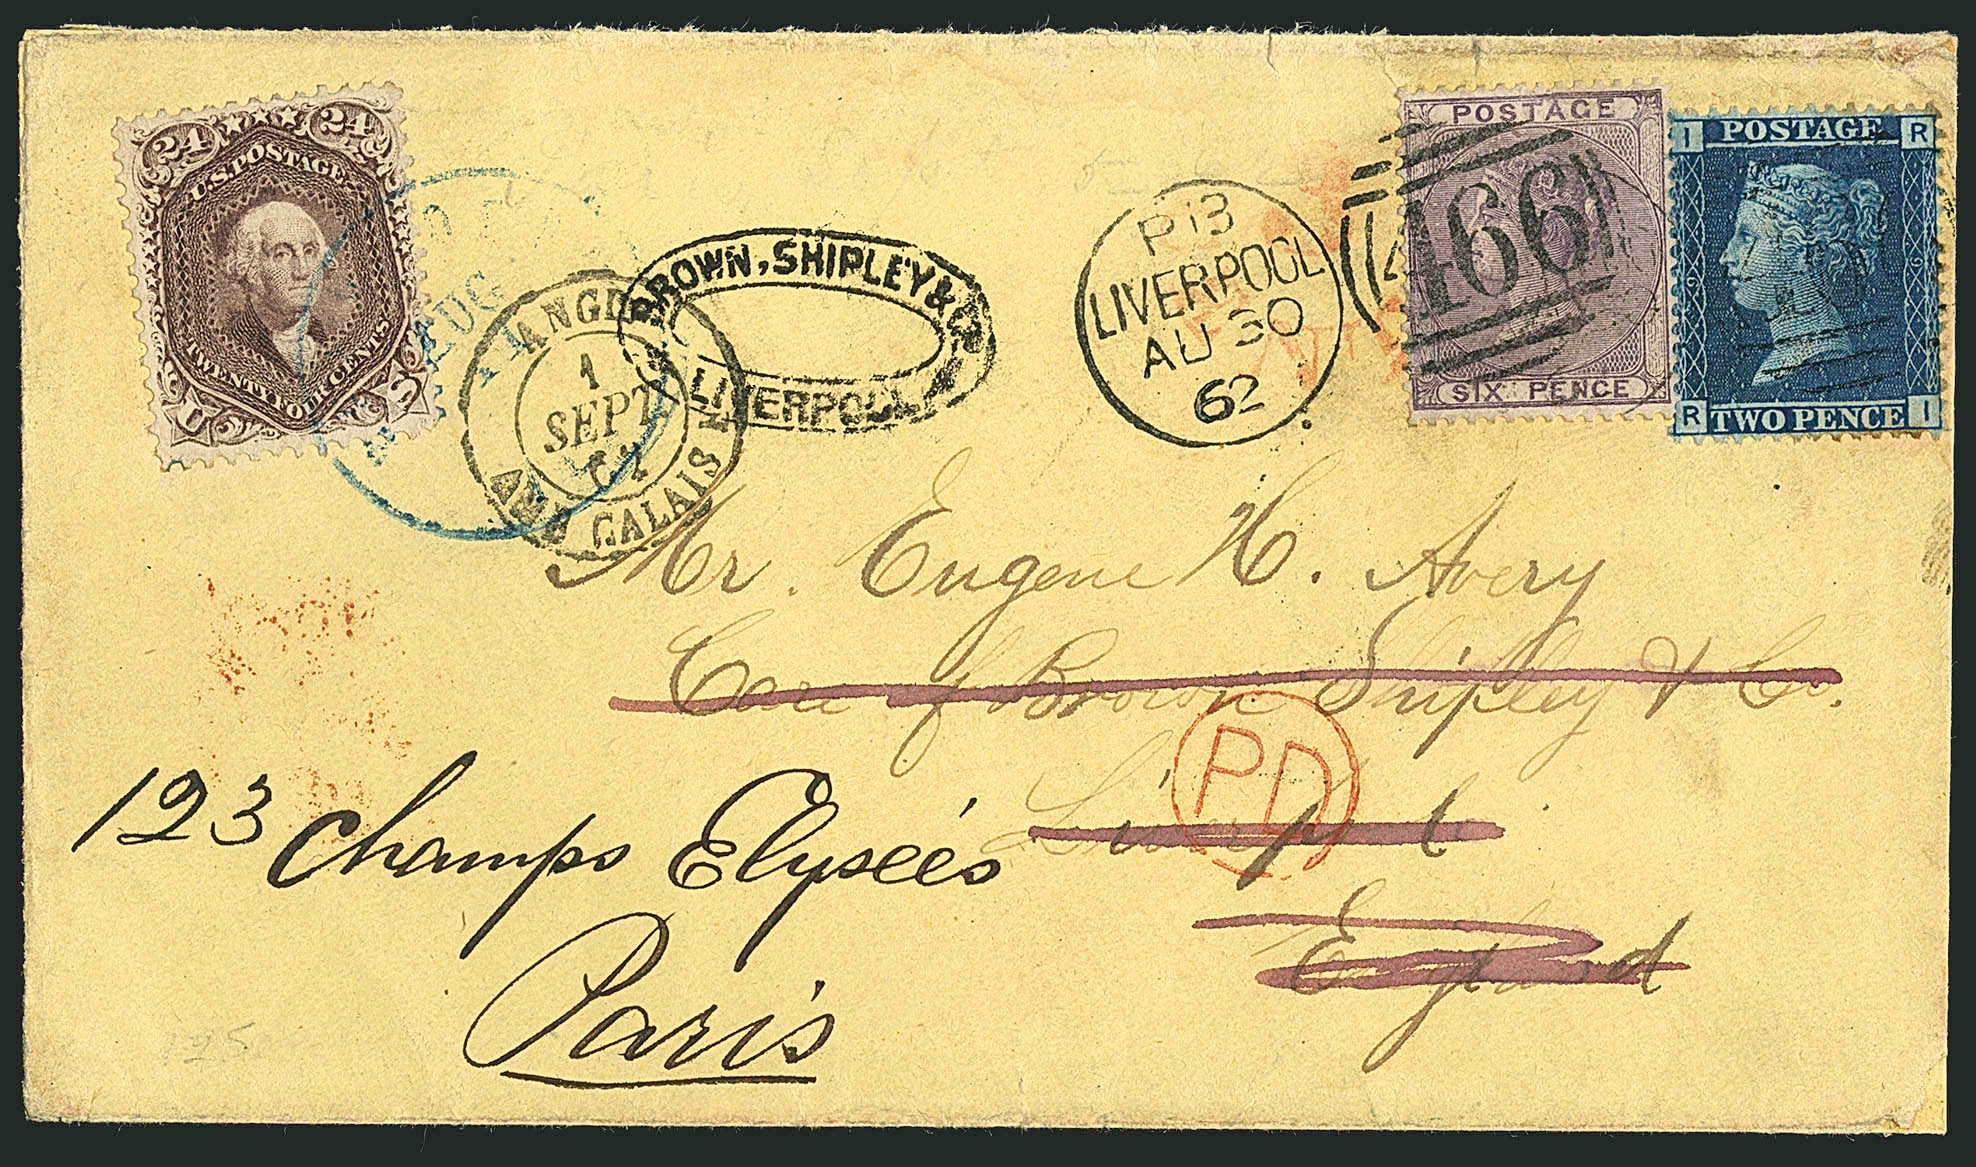 24 24
U.S. POSTAGE
TWENTY FOUR CENTS
U S
AUG
ANGL.
1
SEPT
62
AMB CALAIS
BROWN, SHIPLEY & Co
LIVERPOOL
P 13
LIVERPOOL
AU 30
62
466
POSTAGE
SIX PENCE
I POSTAGE R
R TWO PENCE I
Mr. Eugene H. Avery
Care of Brown Shipley & Co.
Liverpool
England
PD
123 Champs Elyseés
Paris
125